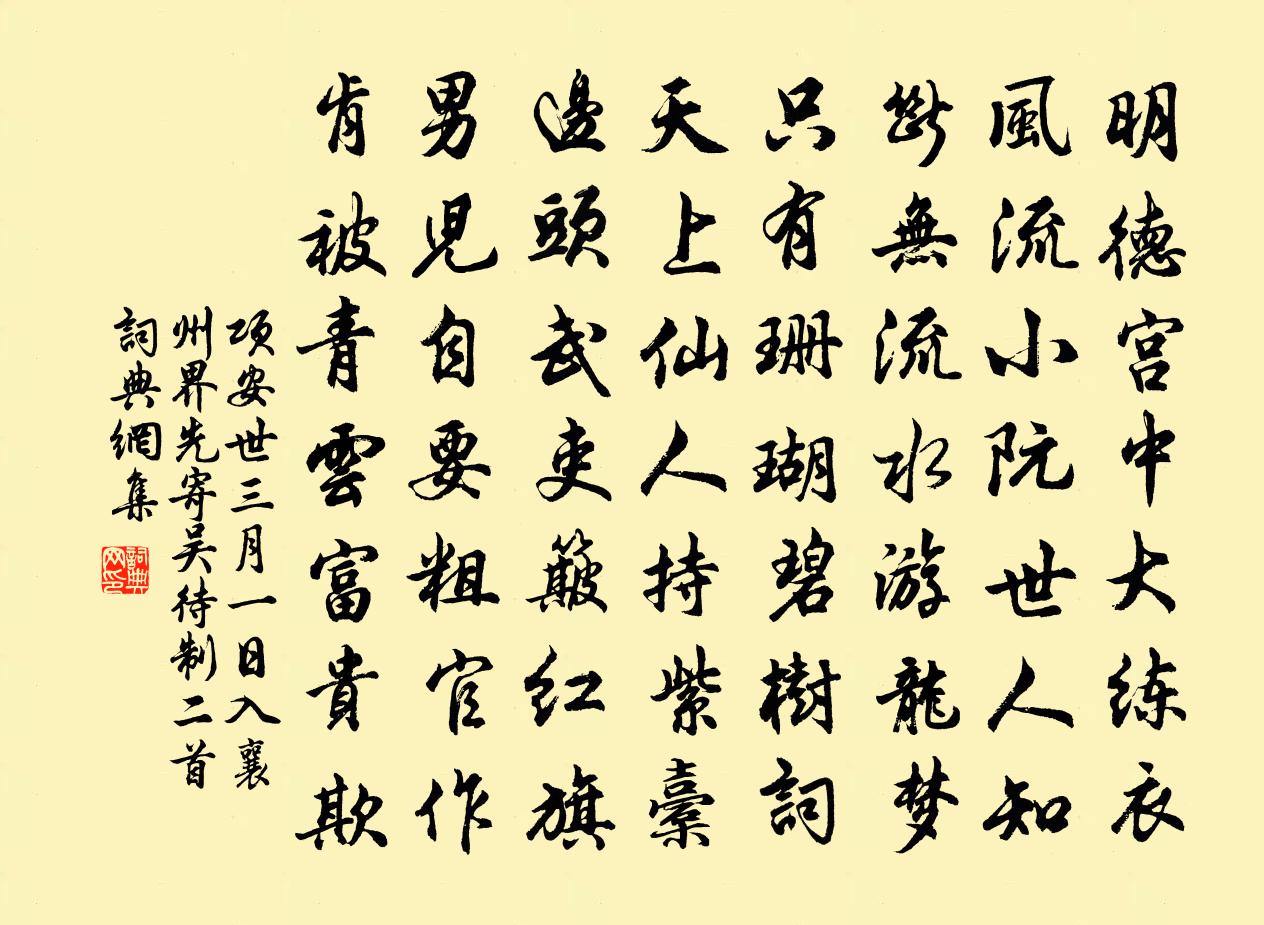 明德宫中大练衣
風流小阮世人知
斷無流水游龍梦
只有珊瑚碧樹詞
天上仙人持紫橐
邊頭武吏簸红旗
男児自要粗官作
肯被青雲富貴欺
项安世三月一日入襄
州界先寄吴待制二首
詞典網集
詞典网印